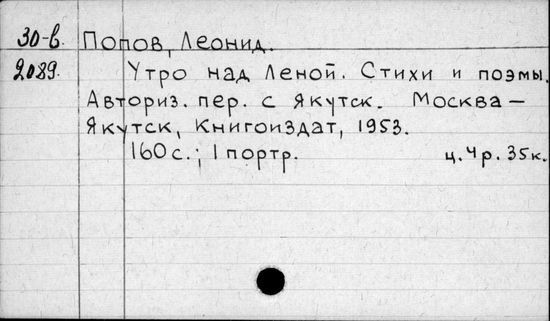 30-в. Попов, Леонид.
2089. Утро над Леной. Стихи и поэмы.
Авториз. пер. с якутск. Москва –
Якутск, Книгоиздат, 1953.
160 с.; 1 портр. ц. 4 р. 35 к.